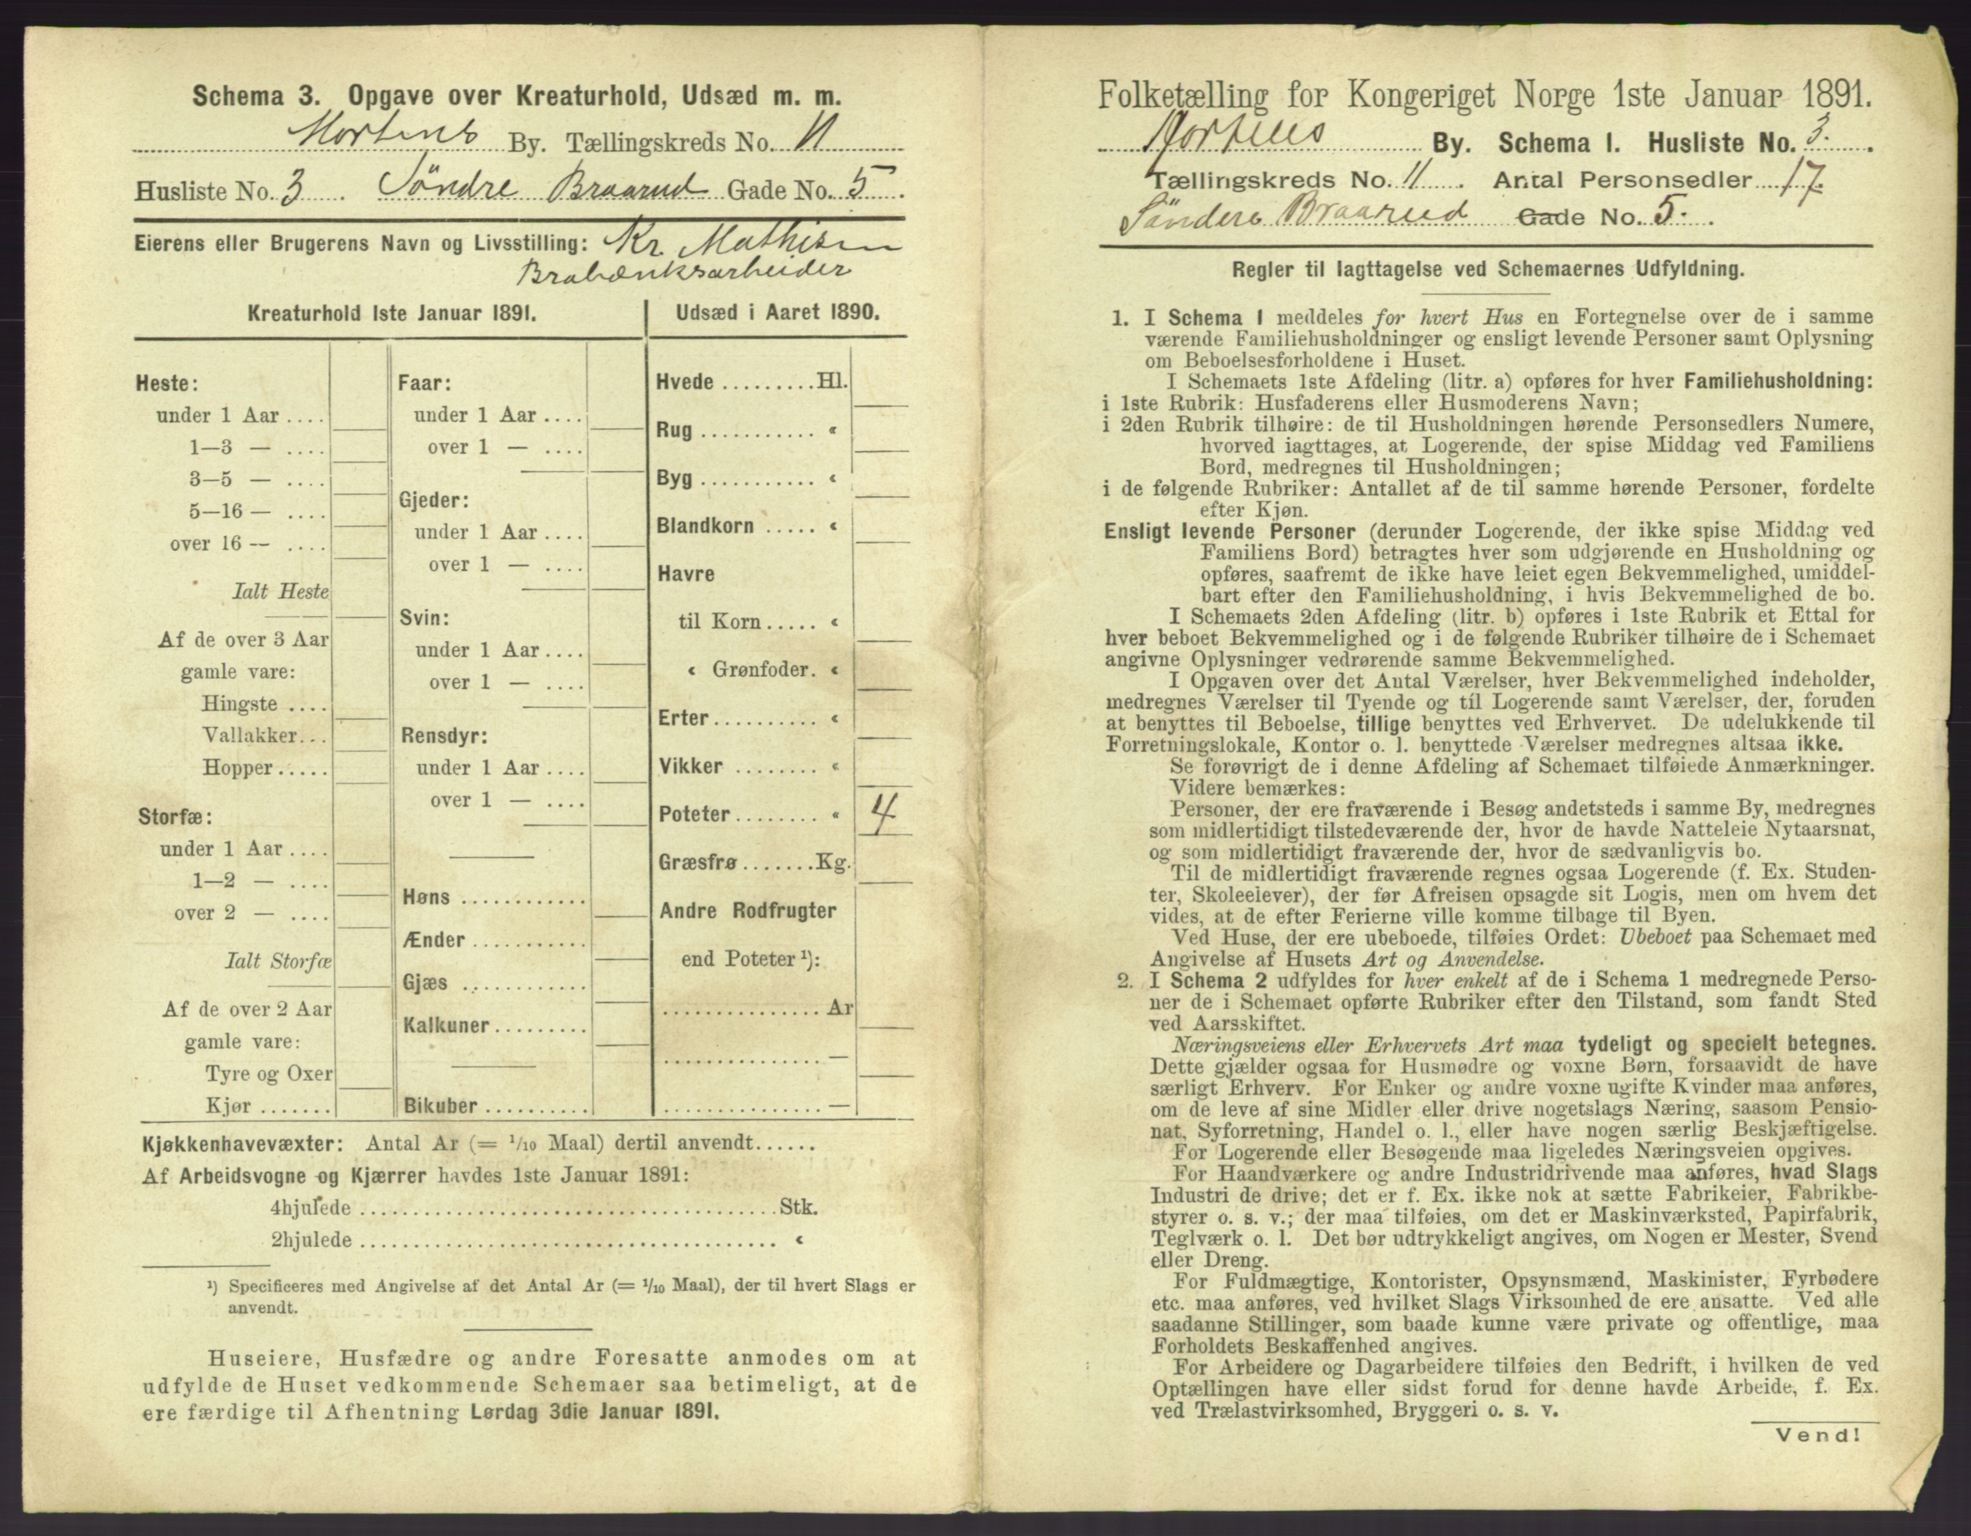 Schema 3. Opgave over Kreaturhold, Udsæd m. m.
Hortens By. Tællingskreds No. 11
Husliste No. 3. Söndre Braarud Gade No. 5.
Eierens eller Brugerens Navn og Livsstilling: Kr. Mathisen
Brobænksarbeider
Kreaturhold 1ste Januar 1891.
Heste:
under 1 Aar ....
1—3 — ....
3—5 — ....
5—16 — ....
over 16 — ....
Ialt Heste
Af de over 3 Aar
gamle vare:
Hingste ....
Vallakker...
Hopper.....
Storfæ:
under 1 Aar ....
1—2 — ....
over 2 — ....
Ialt Storfæ
Af de over 2 Aar
gamle vare:
Tyre og Oxer
Kjør.......
Faar:
under 1 Aar ....
over 1 — ....
Gjeder:
under 1 Aar ....
over 1 — ....
Svin:
under 1 Aar ....
over 1 — ....
Rensdyr:
under 1 Aar ....
over 1 — ....
Høns ............
Ænder ...........
Gjæs ............
Kalkuner.........
Bikuber..........
Udsæd i Aaret 1890.
Hvede .........Hl.
Rug ........... «
Byg ........... «
Blandkorn ..... «
Havre
til Korn..... «
« Grønfoder. «
Erter.......... «
Vikker ........ «
Poteter........ « 4
Græsfrø .......Kg.
Andre Rodfrugter
end Poteter ¹):
...............Ar
...............—
...............—
Kjøkkenhavevæxter: Antal Ar (= 1/10 Maal) dertil anvendt......
Af Arbeidsvogne og Kjærrer havdes 1ste Januar 1891:
4hjulede ......................................Stk.
2hjulede ...................................... «
¹) Specificeres med Angivelse af det Antal Ar (= 1/10 Maal), der til hvert Slags er
anvendt.
Huseiere, Husfædre og andre Foresatte anmodes om at
udfylde de Huset vedkommende Schemaer saa betimeligt, at de
ere færdige til Afhentning Lørdag 3die Januar 1891.
Folketælling for Kongeriget Norge 1ste Januar 1891.
Hortens By. Schema I. Husliste No. 3.
Tællingskreds No. 11. Antal Personsedler 17.
Söndere Braarud Gade No. 5.
Regler til Iagttagelse ved Schemaernes Udfyldning.
1. I Schema 1 meddeles for hvert Hus en Fortegnelse over de i samme
værende Familiehusholdninger og ensligt levende Personer samt Oplysning
om Beboelsesforholdene i Huset.
I Schemaets 1ste Afdeling (litr. a) opføres for hver Familiehusholdning:
i 1ste Rubrik: Husfaderens eller Husmoderens Navn;
i 2den Rubrik tilhøire: de til Husholdningen hørende Personsedlers Numere,
hvorved iagttages, at Logerende, der spise Middag ved Familiens
Bord, medregnes til Husholdningen;
i de følgende Rubriker: Antallet af de til samme hørende Personer, fordelte
efter Kjøn.
Ensligt levende Personer (derunder Logerende, der ikke spise Middag ved
Familiens Bord) betragtes hver som udgjørende en Husholdning og
opføres, saafremt de ikke have leiet egen Bekvemmelighed, umiddel-
bart efter den Familiehusholdning, i hvis Bekvemmelighed de bo.
I Schemaets 2den Afdeling (litr. b) opføres i 1ste Rubrik et Ettal for
hver beboet Bekvemmelighed og i de følgende Rubriker tilhøire de i Schemaet
angivne Oplysninger vedrørende samme Bekvemmelighed.
I Opgaven over det Antal Værelser, hver Bekvemmelighed indeholder,
medregnes Værelser til Tyende og til Logerende samt Værelser, der, foruden
at benyttes til Beboelse, tillige benyttes ved Erhvervet. De udelukkende til
Forretningslokale, Kontor o. l. benyttede Værelser medregnes altsaa ikke.
Se forøvrigt de i denne Afdeling af Schemaet tilføiede Anmærkninger.
Videre bemærkes:
Personer, der ere fraværende i Besøg andetsteds i samme By, medregnes
som midlertidigt tilstedeværende der, hvor de havde Natteleie Nytaarsnat,
og som midlertidigt fraværende der, hvor de sædvanligvis bo.
Til de midlertidigt fraværende regnes ogsaa Logerende (f. Ex. Studen-
ter, Skoleelever), der før Afreisen opsagde sit Logis, men om hvem det
vides, at de efter Ferierne ville komme tilbage til Byen.
Ved Huse, der ere ubeboede, tilføies Ordet: Ubeboet paa Schemaet med
Angivelse af Husets Art og Anvendelse.
2. I Schema 2 udfyldes for hver enkelt af de i Schema 1 medregnede Perso-
ner de i Schemaet opførte Rubriker efter den Tilstand, som fandt Sted
ved Aarsskiftet.
Næringsveiens eller Erhvervets Art maa tydeligt og specielt betegnes.
Dette gjælder ogsaa for Husmødre og voxne Børn, forsaavidt de have
særligt Erhverv. For Enker og andre voxne ugifte Kvinder maa anføres,
om de leve af sine Midler eller drive nogetslags Næring, saasom Pensio-
nat, Syforretning, Handel o. l., eller have nogen særlig Beskjæftigelse.
For Logerende eller Besøgende maa ligeledes Næringsveien opgives.
For Haandværkere og andre Industridrivende maa anføres, hvad Slags
Industri de drive; det er f. Ex. ikke nok at sætte Fabrikeier, Fabrikbe-
styrer o. s. v.; der maa tilføies, om det er Maskinværksted, Papirfabrik,
Teglværk o. l. Det bør udtrykkeligt angives, om Nogen er Mester, Svend
eller Dreng.
For Fuldmægtige, Kontorister, Opsynsmænd, Maskinister, Fyrbødere
etc. maa anføres, ved hvilket Slags Virksomhed de ere ansatte. Ved alle
saadanne Stillinger, som baade kunne være private og offentlige, maa
Forholdets Beskaffenhed angives.
For Arbeidere og Dagarbeidere tilføies den Bedrift, i hvilken de ved
Optællingen have eller sidst forud for denne havde Arbeide, f. Ex.
ved Trælastvirksomhed, Bryggeri o. s. v.
Vend!